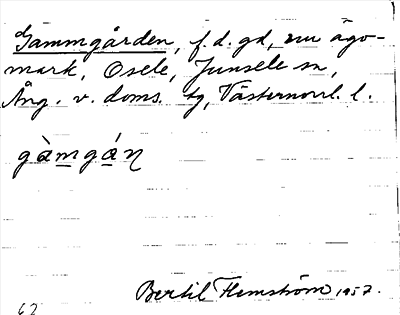 Gammgården, f. d. gd, nu ägo-
mark, Osele, Junsele sn,
Ång. v. doms. tg, Västernorrl. l.
gàmgáɳ
Bertil Flemström 1957.
62